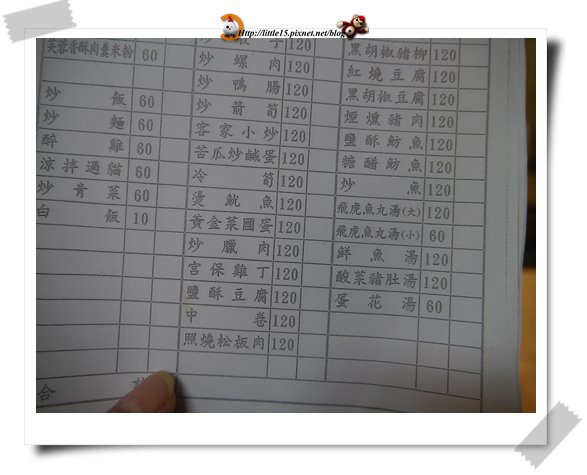 Http://little15.pixnet.net/blog
芙蓉香酥肉羹米粉 60
炒飯 60
炒麵 60
醉雞 60
涼拌過貓 60
炒青菜 60
白飯 10
合
120
炒螺肉 120
炒鴨腸 120
炒箭筍 120
客家小炒 120
苦瓜炒鹹蛋 120
冷筍 120
燙魷魚 120
黃金菜圃蛋 120
炒臘肉 120
宮保雞丁 120
鹽酥豆腐 120
中卷 120
照燒松板肉 120
黑胡椒豬柳 120
紅燒豆腐 120
黑胡椒豆腐 120
煙燻豬肉 120
鹽酥魴魚 120
糖醋魴魚 120
炒魚 120
飛虎魚丸湯(大) 120
飛虎魚丸湯(小) 60
鮮魚湯 120
酸菜豬肚湯 120
蛋花湯 60